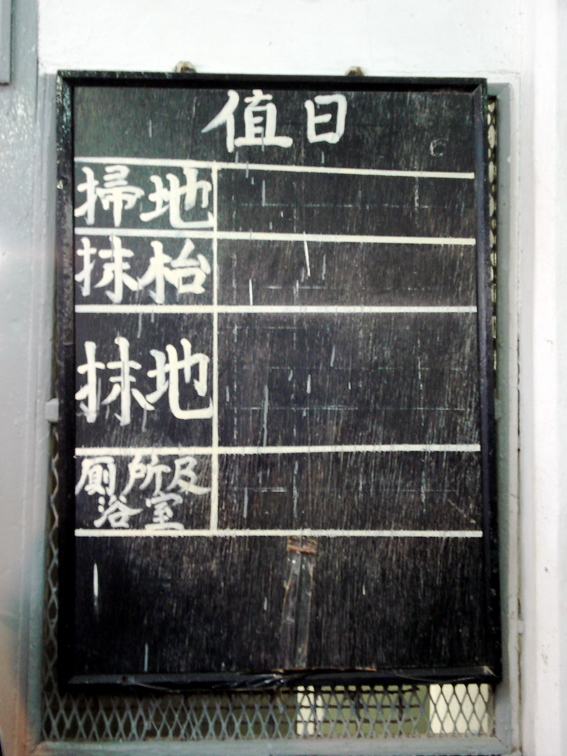 值日
掃地
抹枱
抹地
廁所及
浴室